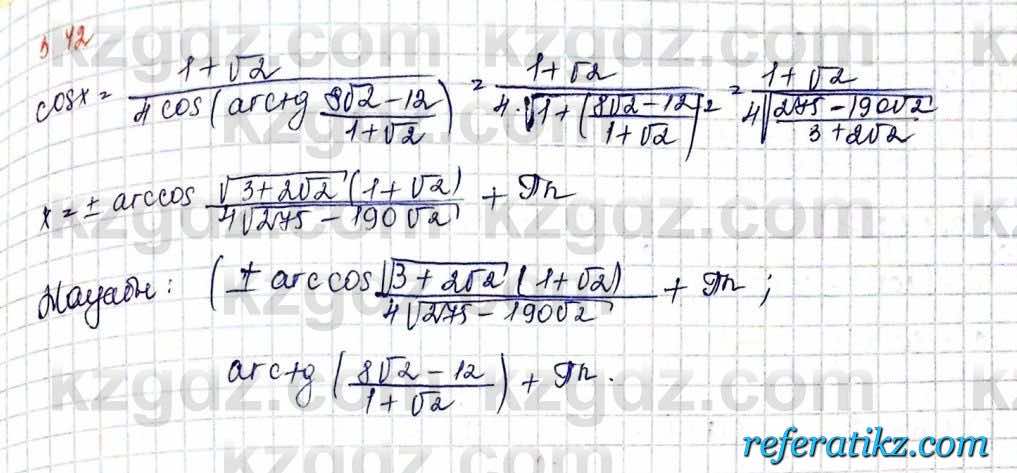 5.42
cosx = (1+√2)/(4 cos(arctg (8√2-12)/(1+√2))) = (1+√2)/(4·√(1+((8√2-12)/(1+√2))²)) = (1+√2)/(4√((275-190√2)/(3+2√2)))
x = ± arccos (√(3+2√2) (1+√2))/(4√(275-190√2)) + πn
Жауабы: (± arccos (√(3+2√2) (1+√2))/(4√(275-190√2)) + πn;
arctg ((8√2-12)/(1+√2)) + πn.
kzgdz.com
referatikz.com